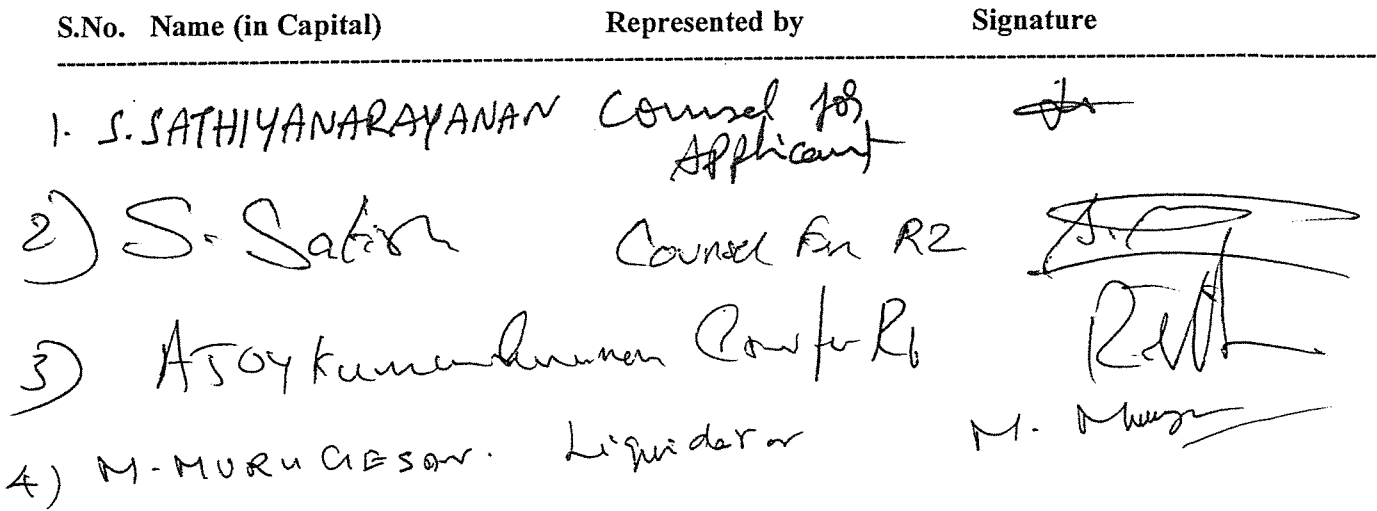 S.No. Name (in Capital) Represented by Signature
1. S. SATHIYANARAYANAN Counsel for
Applicant
2) S. Satish Counsel For R2
3) AJOY Kumar R1
4) M. MURUGESAN. Liquidator M. Muruge